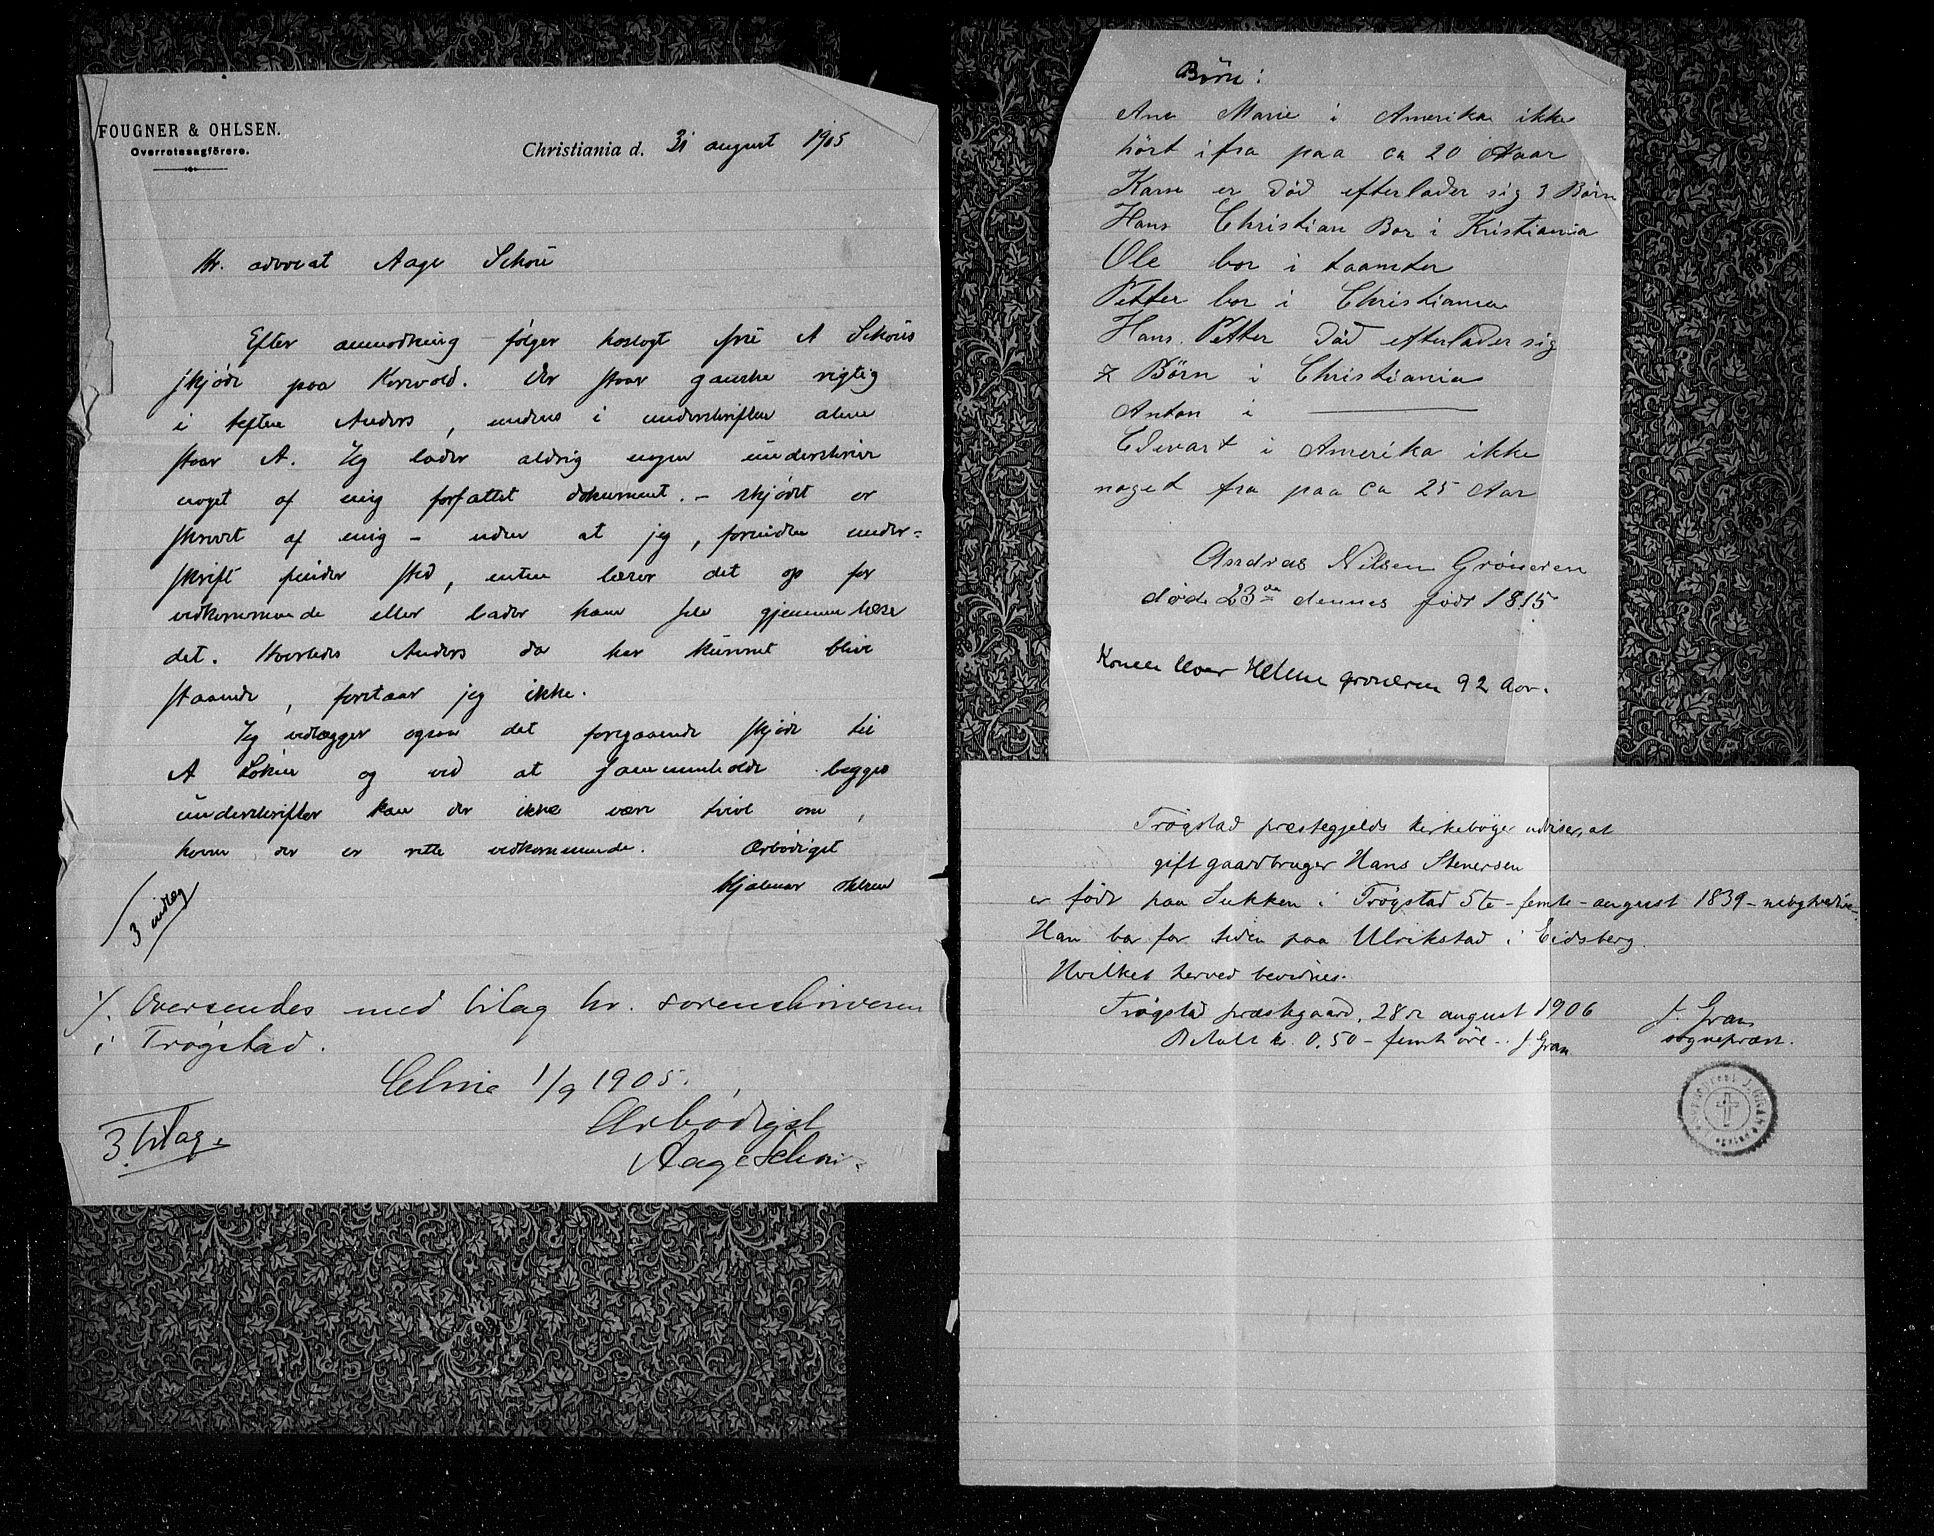 FOUGNER & OHLSEN.
Overretssagförere.
Christiania d. 31 august 1905
Hr. advocat Aage Schou
Efter anmodning følger hoslagt fru A Schous
skjøde paa Korsvold. Der staar ganske rigtig
i teksten Anders, medens i underskriften alene
staar A. Jeg lader aldrig nogen underskrive
noget af mig forfattet dokument. – skjødet er
skrevet af mig – uden at jeg, forinden under=
skrift finder sted, enten læser det op for
vedkommende eller lader ham selv gjennemlæse
det. Hvorledes Anders da har kunnet blive
staaende, forstaar jeg ikke.
Jeg vedlægger ogsaa det foregaaende skjøde til
A og ved at sammenholde begges
underskrifter kan der ikke være tvivl om,
hvem der er rette vedkommende. Ærbødigst
Hjalmar
3 indlæg
·/. Oversendes med bilag hr. sorenskriveren
i Trøgstad.
1/9 1905.
Ærbødigst
Aage Schou.
3 bilag.
Børn:
Ane Marie i Amerika ikke
hört ifra paa ca 20 Aaar
Karn er Död efterlader sig 3 Börn
Hans Christian Bor i Kristiania
Ole bor i
Petter bor i Christiania
Hans. Petter Död efterlader sig
2 Børn i Christiania
Anton i ————
Edevart i Amerika ikke
noget fra paa ca 25 Aar
Andreas Nilsen Gröneren
död 23de dennes födt 1815
Konen lever Helene groneren 92 Aar.
Trøgstad præstegjelds kirkebøger udviser, at
gift gaardbruger Hans Stenersen
er født paa Lukken i Trøgstad 5te – femte – august 1839 –
Han bor for tiden paa Ulrikstad i Eidsberg.
Hvilket herved bevidnes.
Trøgstad præstegaard, 28de august 1906
J. Gran
sogneprest.
Betalt kr. 0.50 – femti øre – J Gran